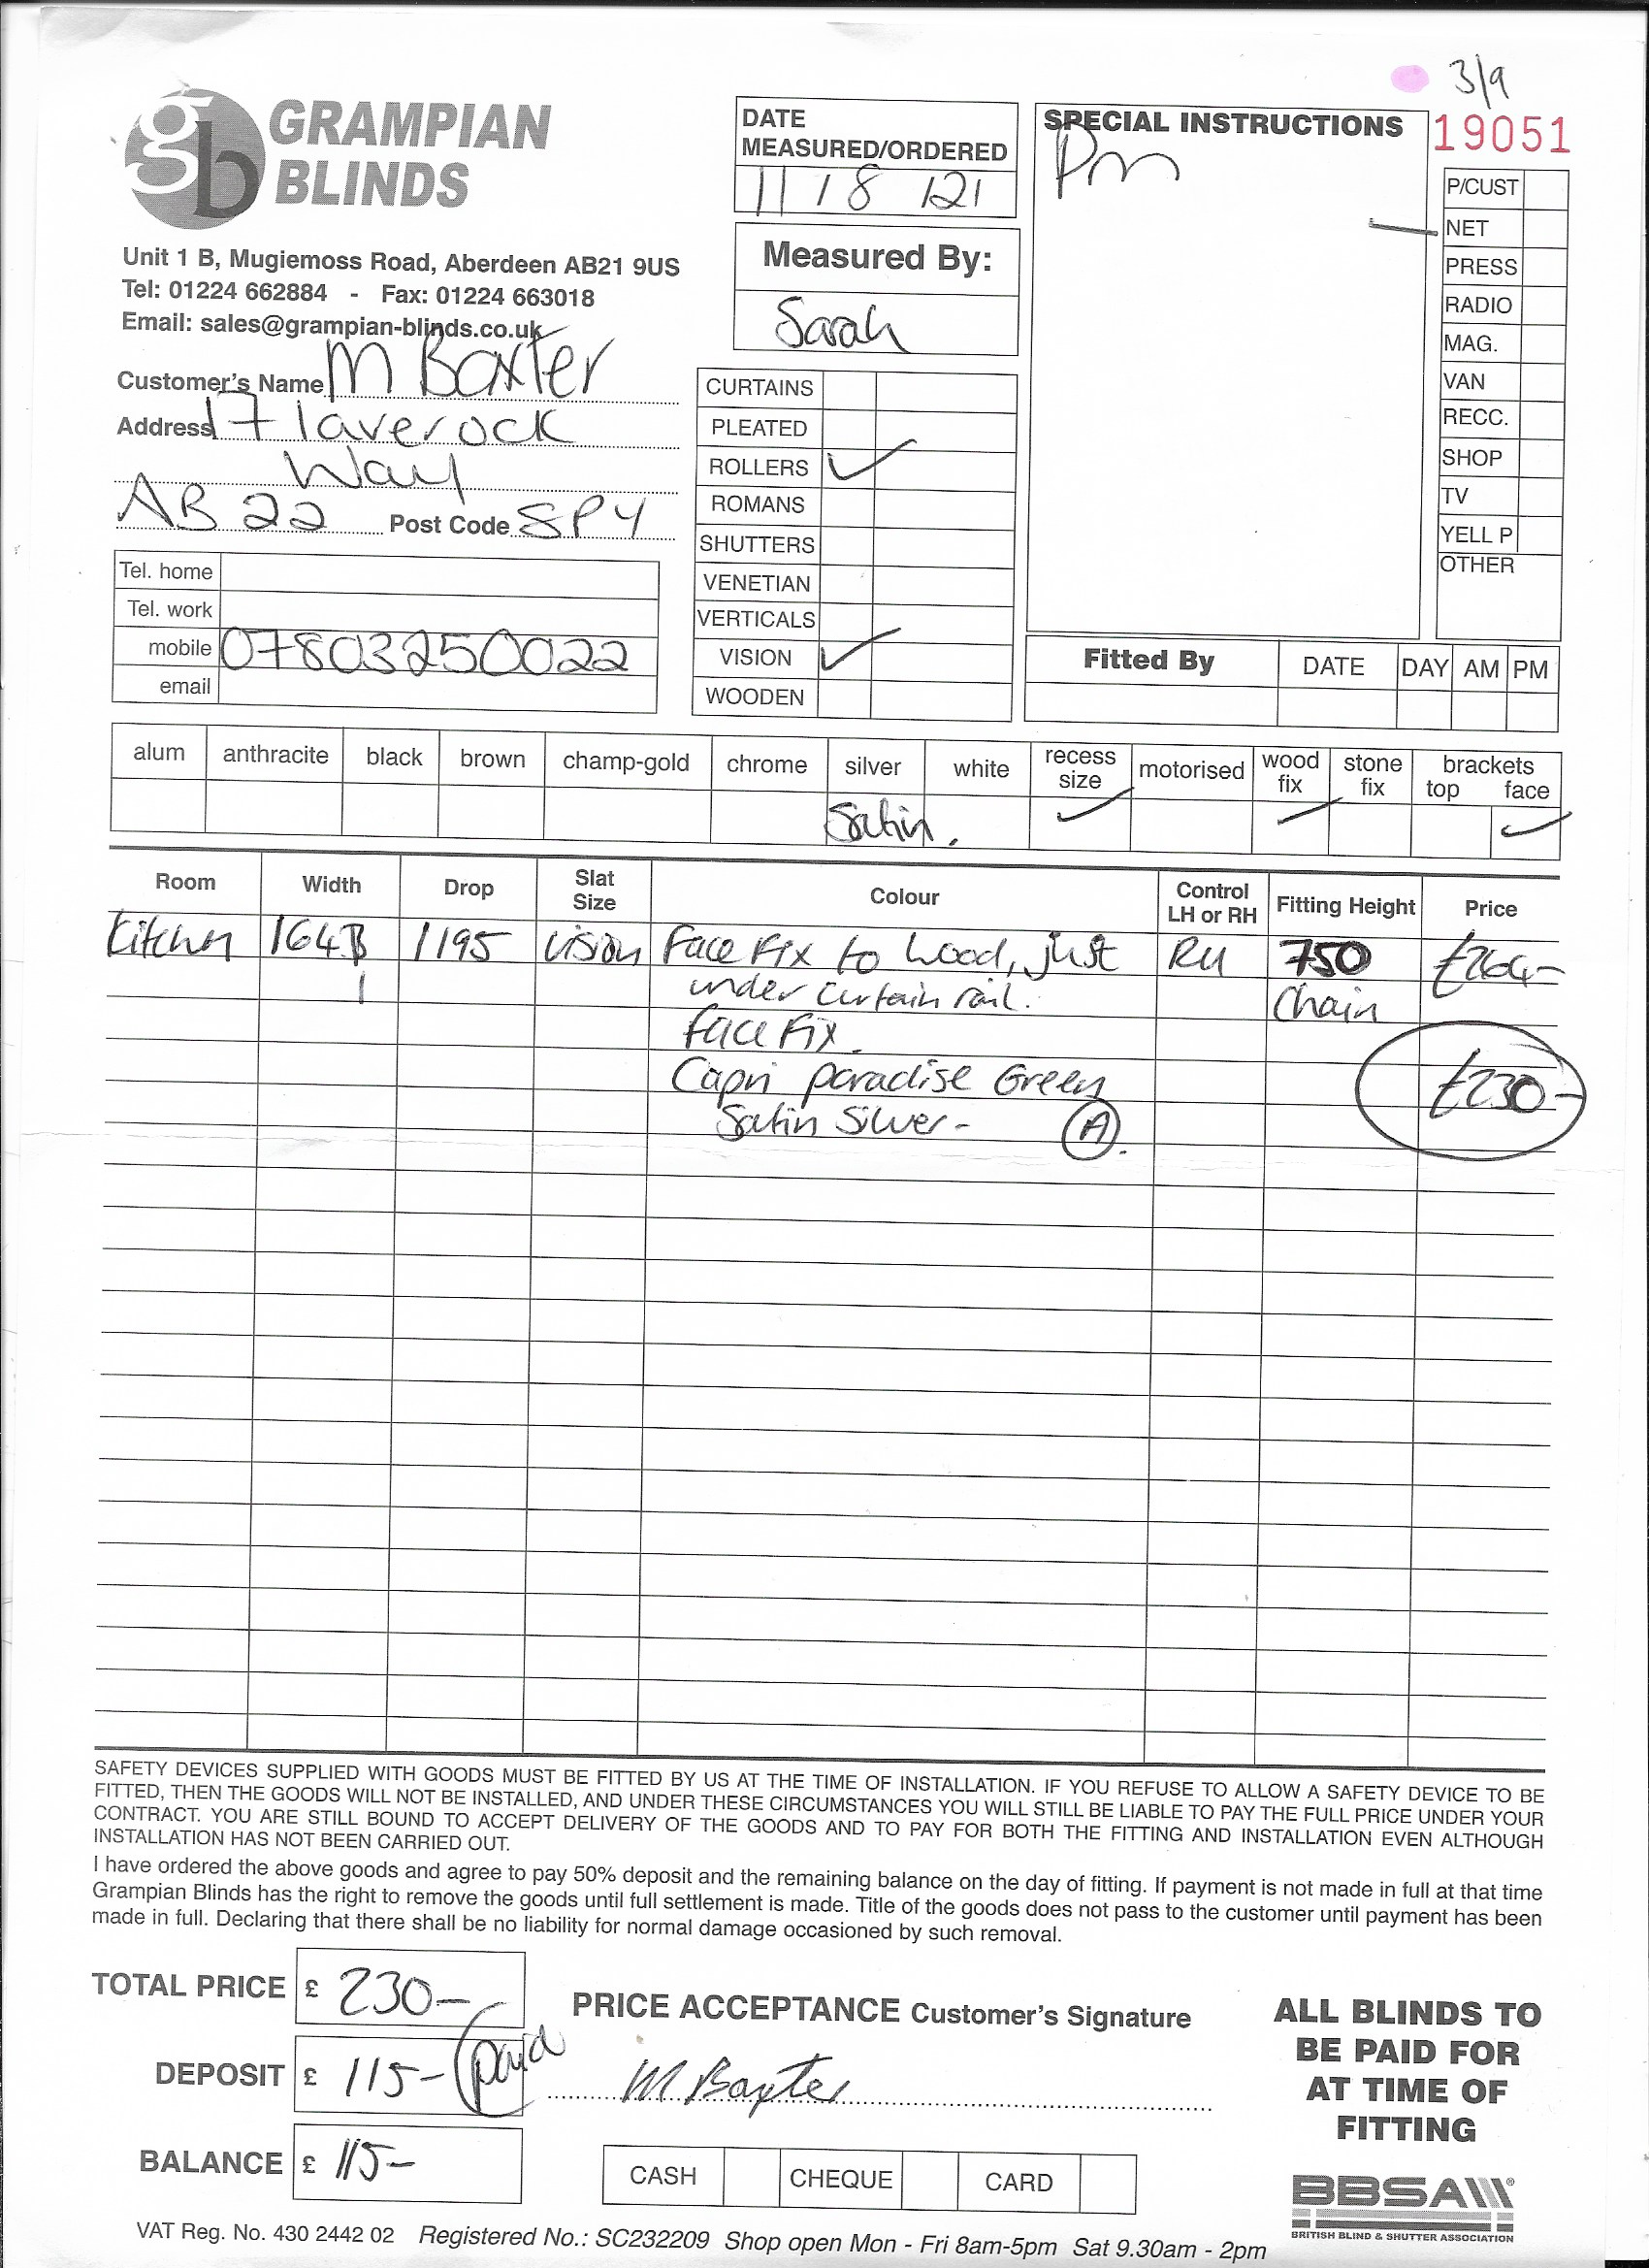 3/9
GRAMPIAN
BLINDS
Unit 1 B, Mugiemoss Road, Aberdeen AB21 9US
Tel: 01224 662884 - Fax: 01224 663018
Email: sales@grampian-blinds.co.uk
DATE
MEASURED/ORDERED
11 / 8 / 21
Measured By:
Sarah
SPECIAL INSTRUCTIONS
Pm
19051
P/CUST
NET
PRESS
RADIO
MAG.
VAN
RECC.
SHOP
TV
YELL P
OTHER
Customer's Name M Baxter
Address 17 laverock
Way
AB22 Post Code 8PY
Tel. home
Tel. work
mobile 07803250022
email
CURTAINS
PLEATED
ROLLERS ✓
ROMANS
SHUTTERS
VENETIAN
VERTICALS
VISION ✓
WOODEN
Fitted By DATE DAY AM PM
alum anthracite black brown champ-gold chrome silver white recess size motorised wood fix stone fix brackets top face
Satin. ✓ ✓ ✓
Room Width Drop Slat Size Colour Control LH or RH Fitting Height Price
Kitchen 1195 Vision Face Fix to wood, just RH 750 £264-
under curtain rail. Chain
face Fix.
Capri paradise Green £230-
Satin Silver - A.
SAFETY DEVICES SUPPLIED WITH GOODS MUST BE FITTED BY US AT THE TIME OF INSTALLATION. IF YOU REFUSE TO ALLOW A SAFETY DEVICE TO BE
FITTED, THEN THE GOODS WILL NOT BE INSTALLED, AND UNDER THESE CIRCUMSTANCES YOU WILL STILL BE LIABLE TO PAY THE FULL PRICE UNDER YOUR
CONTRACT. YOU ARE STILL BOUND TO ACCEPT DELIVERY OF THE GOODS AND TO PAY FOR BOTH THE FITTING AND INSTALLATION EVEN ALTHOUGH
INSTALLATION HAS NOT BEEN CARRIED OUT.
I have ordered the above goods and agree to pay 50% deposit and the remaining balance on the day of fitting. If payment is not made in full at that time
Grampian Blinds has the right to remove the goods until full settlement is made. Title of the goods does not pass to the customer until payment has been
made in full. Declaring that there shall be no liability for normal damage occasioned by such removal.
TOTAL PRICE £ 230-
DEPOSIT £ 115- paid
BALANCE £ 115-
PRICE ACCEPTANCE Customer's Signature
M Baxter
CASH CHEQUE CARD
ALL BLINDS TO
BE PAID FOR
AT TIME OF
FITTING
BBSA
BRITISH BLIND & SHUTTER ASSOCIATION
VAT Reg. No. 430 2442 02 Registered No.: SC232209 Shop open Mon - Fri 8am-5pm Sat 9.30am - 2pm